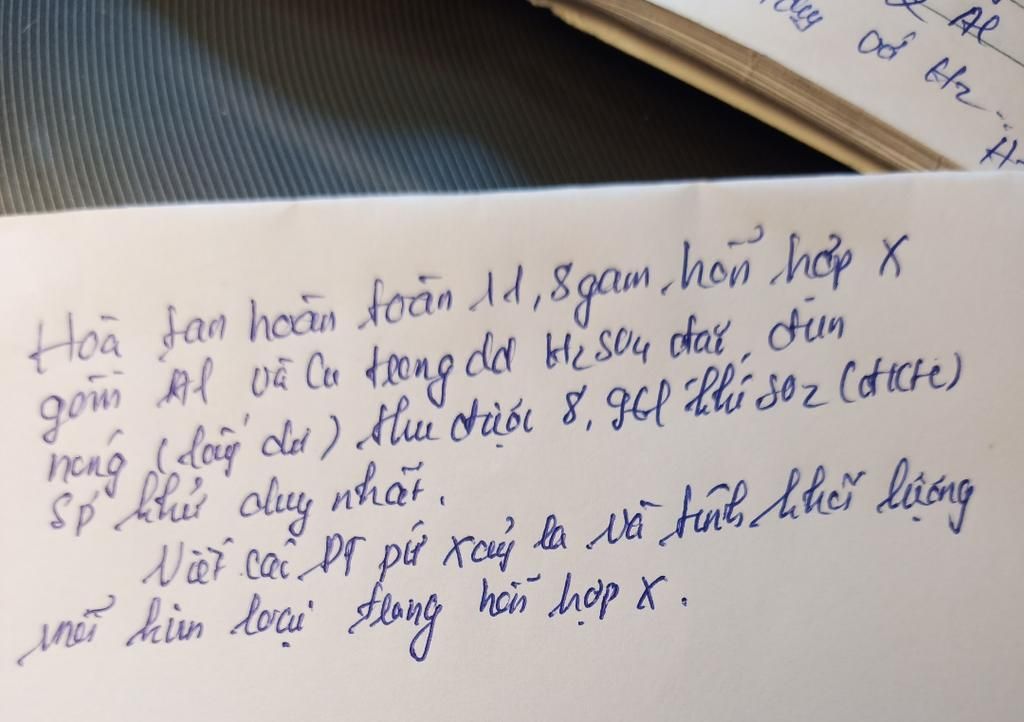 duy
với H2...
Al
H
Hoà tan hoàn toàn 11,8gam hỗn hợp X
gồm Al và Cu trong dd H2SO4 đặc, đun
nóng (lấy dư) thu được 8,96l khí SO2 (đktc)
sp khử duy nhất.
Viết các PT pứ xảy ra và tính khối lượng
mỗi kim loại trong hỗn hợp X.